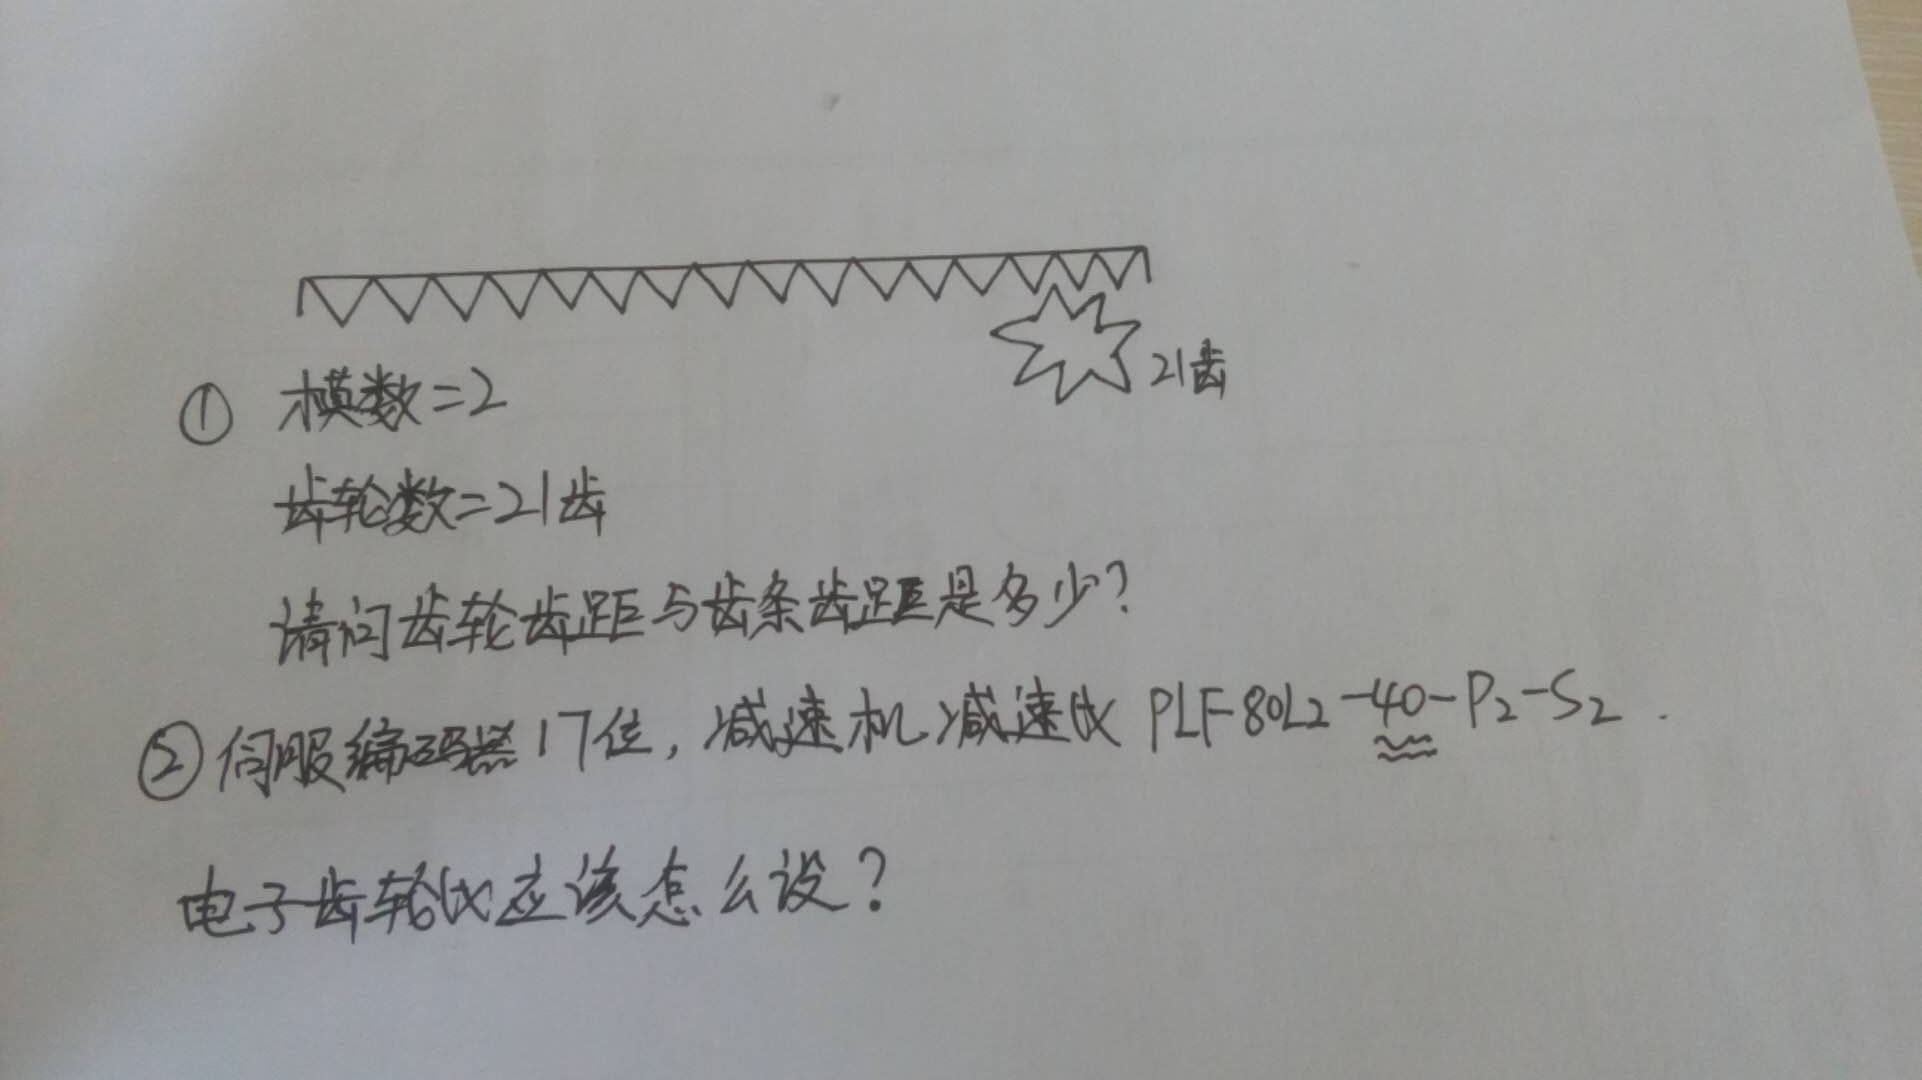 21齿
① 模数=2
齿轮数=21齿
请问齿轮齿距与齿条齿距是多少?
② 伺服编码器17位，减速机减速比 PLF80L2-40-P2-S2.
电子齿轮比应该怎么设?